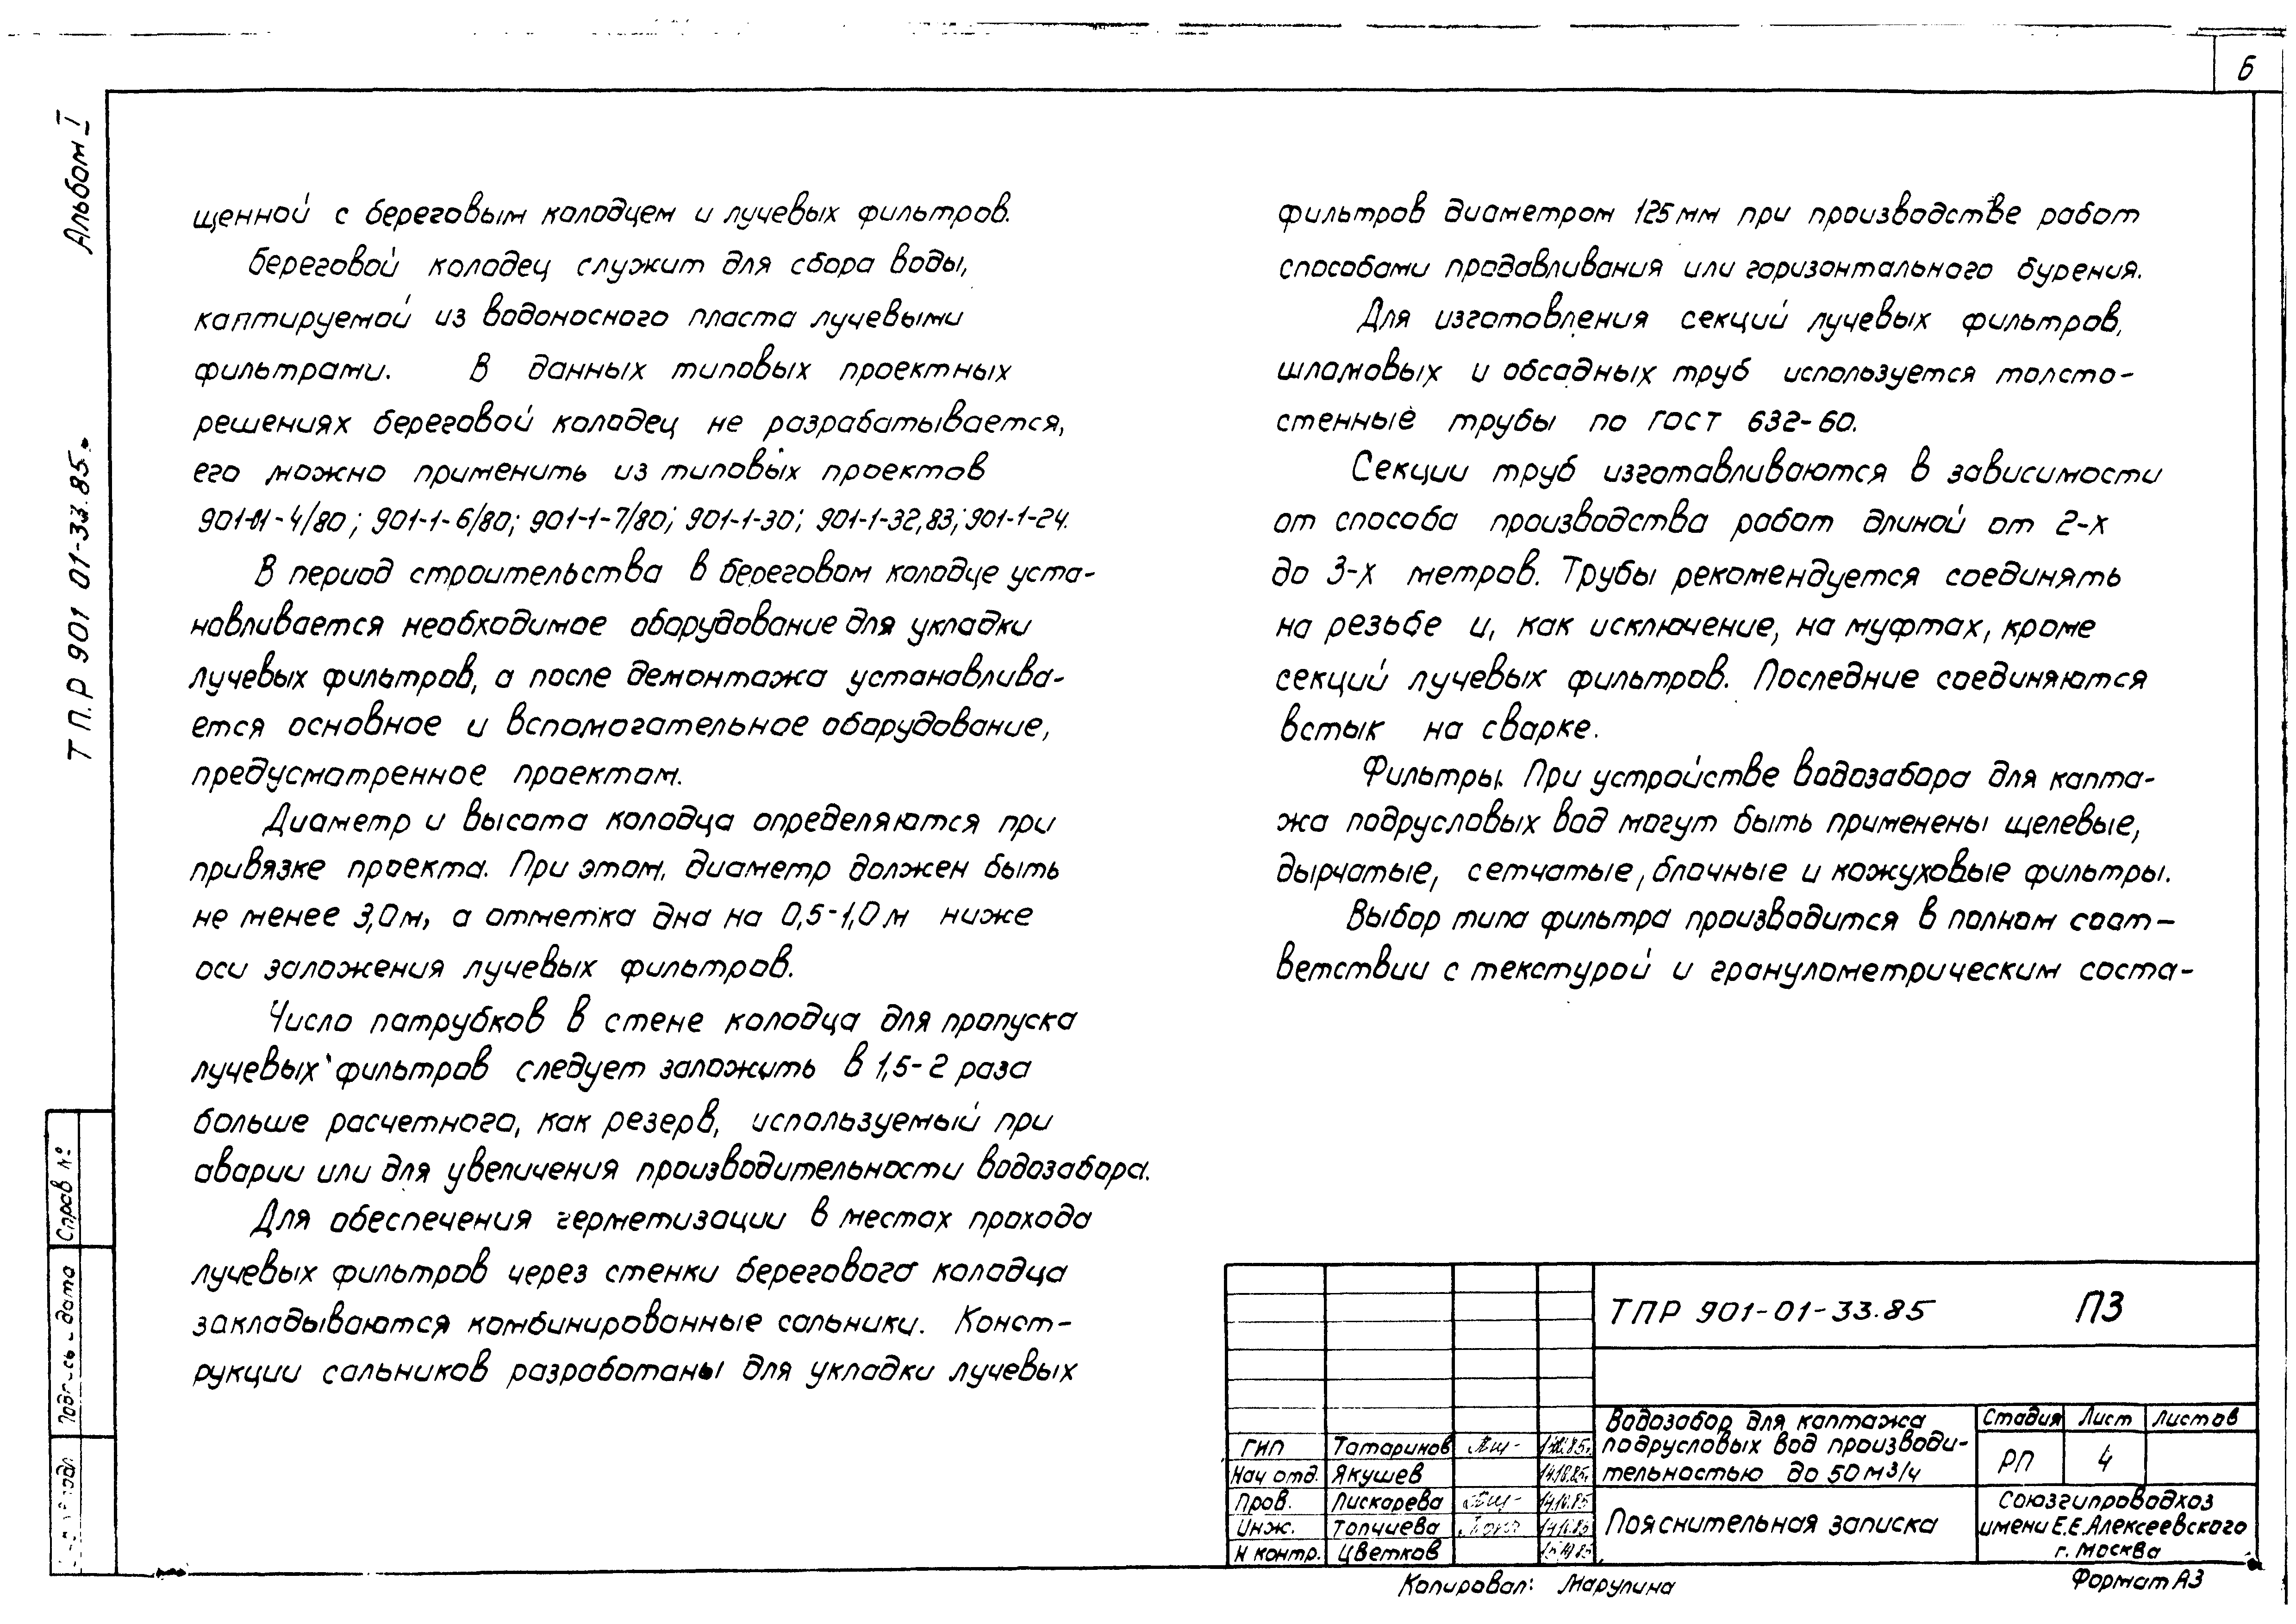 6
Альбом I
Т П.Р 901 01-33.85.
щенной с береговым колодцем и лучевых фильтров.
Береговой колодец служит для сбора воды,
каптируемой из водоносного пласта лучевыми
фильтрами. В данных типовых проектных
решениях береговой колодец не разрабатывается,
его можно применить из типовых проектов
901-01-4/80; 901-1-6/80; 901-1-7/80; 901-1-30; 901-1-32,83; 901-1-24.
В период строительства в береговом колодце уста-
навливается необходимое оборудование для укладки
лучевых фильтров, а после демонтажа устанавлива-
ется основное и вспомогательное оборудование,
предусмотренное проектом.
Диаметр и высота колодца определяются при
привязке проекта. При этом, диаметр должен быть
не менее 3,0м, а отметка дна на 0,5-1,0м ниже
оси заложения лучевых фильтров.
Число патрубков в стене колодца для пропуска
лучевых фильтров следует заложить в 1,5-2 раза
больше расчетного, как резерв, используемый при
аварии или для увеличения производительности водозабора.
Для обеспечения герметизации в местах прохода
лучевых фильтров через стенки берегового колодца
закладываются комбинированные сальники. Конст-
рукции сальников разработаны для укладки лучевых
фильтров диаметром 125мм при производстве работ
способами продавливания или горизонтального бурения.
Для изготовления секций лучевых фильтров,
шламовых и обсадных труб используется толсто-
стенные трубы по ГОСТ 632-60.
Секции труб изготавливаются в зависимости
от способа производства работ длиной от 2-х
до 3-х метров. Трубы рекомендуется соединять
на резьбе и, как исключение, на муфтах, кроме
секций лучевых фильтров. Последние соединяются
встык на сварке.
Фильтры. При устройстве водозабора для капта-
жа подрусловых вод могут быть применены щелевые,
дырчатые, сетчатые, блочные и кожуховые фильтры.
Выбор типа фильтра производится в полном соот-
ветствии с текстурой и гранулометрическим соста-
Справ №
Подпись и дата
подл
ТПР 901-01-33.85 ПЗ
Водозабор для каптажа
подрусловых вод производи-
тельностью до 50 м3/ч
Стадия Лист Листов
РП 4
ГИП Татаринов
Нач отд. Якушев 14.10.85г.
Пров. Пискарева 14.10.85
Инж. Топчиева 14.10.85
Н контр. Цветков
Пояснительная записка
Союзгипроводхоз
имени Е.Е.Алексеевского
г. Москва
Копировал: Марулина
Формат А3